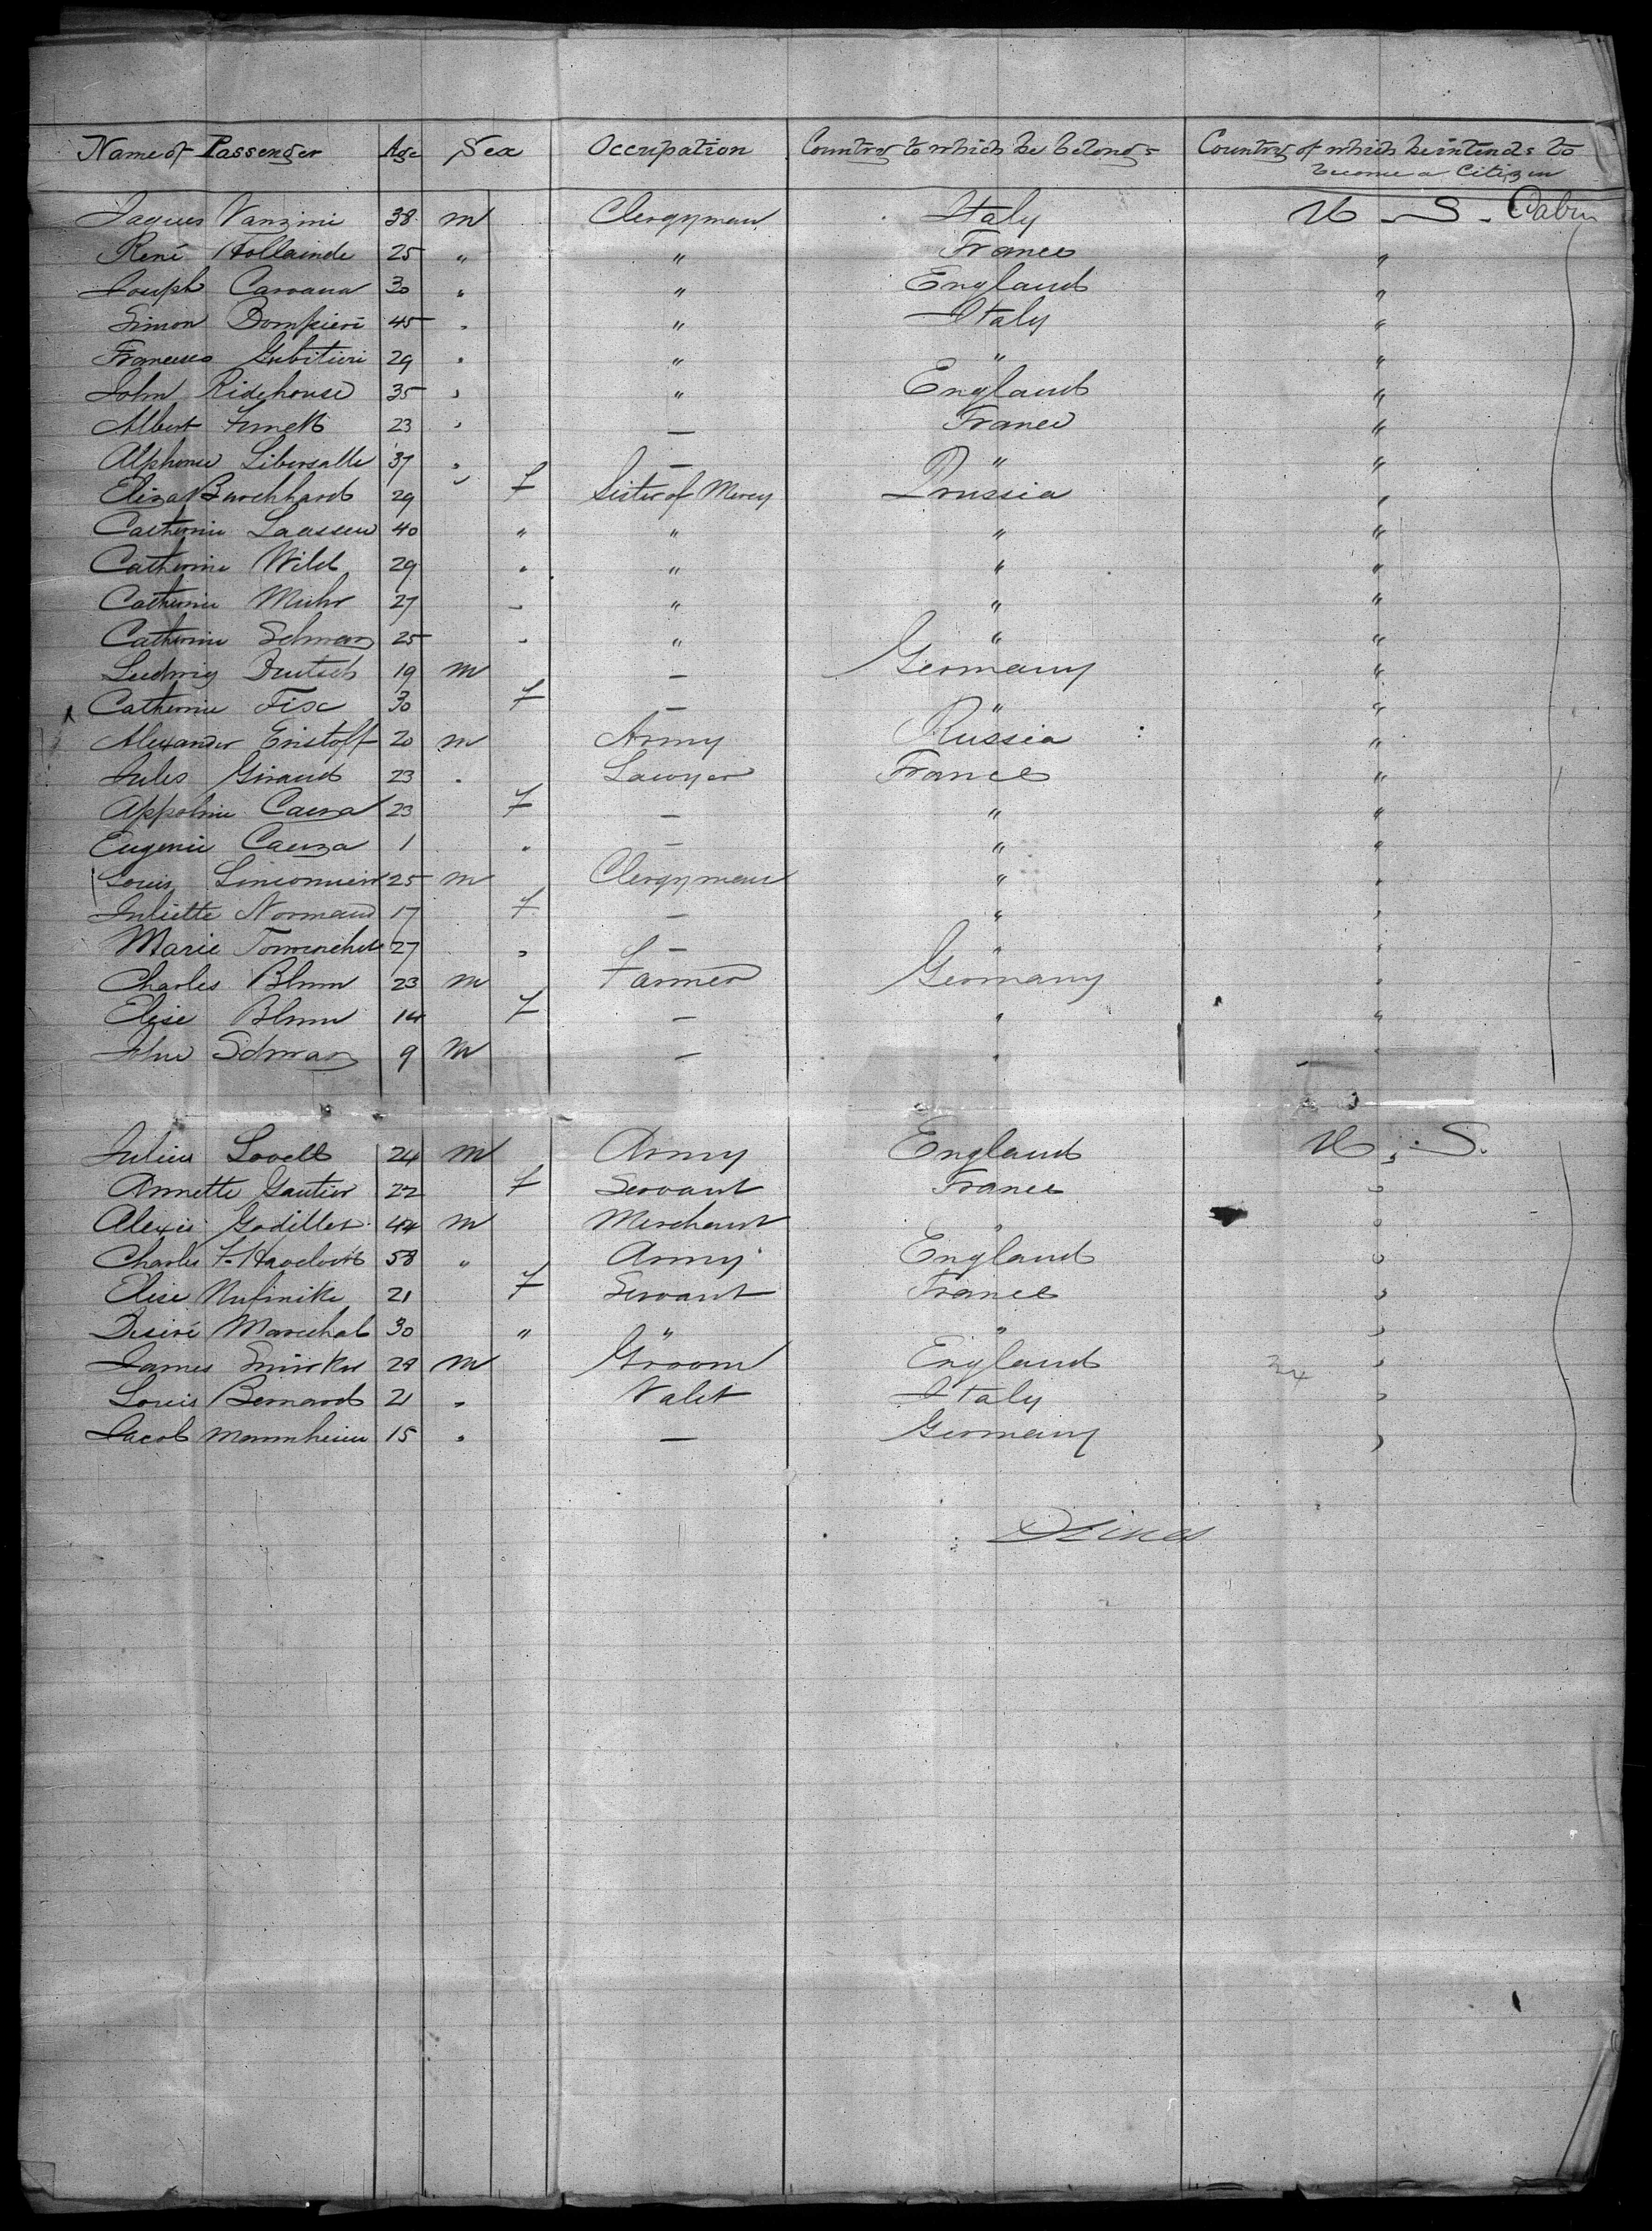 Name of Passenger Age Sex Occupation Country to which he belongs Country of which he intends to
become a Citizen
Jaques Vanzini 38 m Clergyman Italy U - S - Cabin
René Hollainde 25 " " France "
Joseph Caroana 30 " " England "
Simon Dompieri 45 " " Italy "
Francesco Gubitieri 29 " " " "
John Ridehouse 35 " " England "
Albert 23 " — France "
Alphonse Libersalle 37 " — " "
Eliza Burchhard 29 " F Sister of Mercy Prussia "
Catherine Laassen 40 " " " "
Catherine Wild 29 " " " "
Catherine Muhr 27 " " " "
Catherine Schwarz 25 " " " "
Ludwig Deutsch 19 m — Germany "
Catherine Fisc 30 F — " "
Alexander Eristoff 20 m Army Russia "
Jules Giraud 23 " Lawyer France "
Appoline Cauza 23 F — " "
Eugenie Cauza 1 " — " "
Louis 25 m Clergyman " "
Juliette Normand 17 F — " "
Marie 27 " — " "
Charles Blum 23 m Farmer Germany "
Elise Blum 14 F — " "
John Schwarz 9 m — " "
Julien Lovell 24 m Army England U. S.
Annette Gautier 22 F Servant France "
Alexis Godillet 44 m Merchant " "
Charles F. Havelock 58 " Army England "
Elise 21 F Servant France "
Desiré Marechal 30 " " " "
James 28 m Groom England 24 "
Louis Bernard 21 " Valet Italy "
Jacob Mannheim 15 " — Germany "